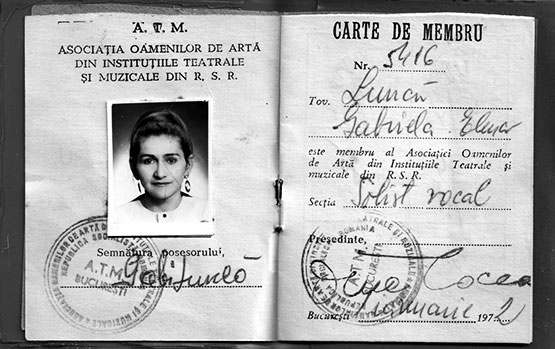 A. T. M.
ASOCIAȚIA OAMENILOR DE ARTĂ
DIN INSTITUȚIILE TEATRALE
ȘI MUZICALE DIN R. S. R.
Semnătura posesorului,
Gabi Luncă
A.T.M.
BUCUREȘTI
CARTE DE MEMBRU
Nr. 5416
Tov. Luncă
Gabriela Elena
este membru al Asociației Oamenilor
de Artă din Instituțiile Teatrale și
muzicale din R. S. R.
Secția Solist vocal
Președinte,
Cocea
București ianuarie 197
A.T.M.
BUCUREȘTI